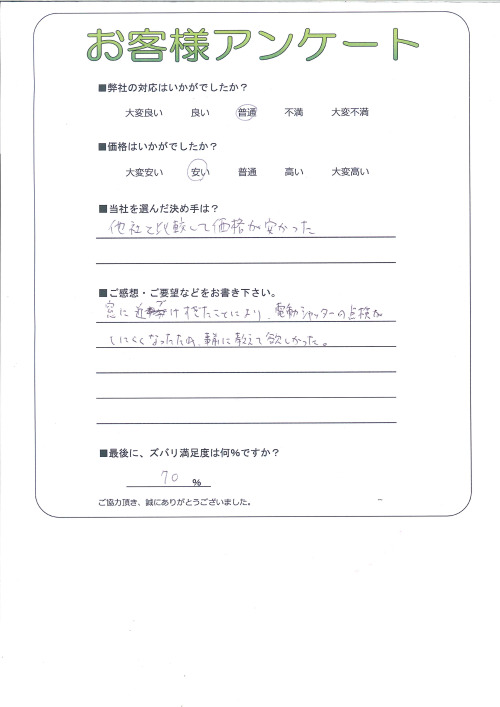 お客様アンケート
■弊社の対応はいかがでしたか？
大変良い 良い 普通 不満 大変不満
■価格はいかがでしたか？
大変安い 安い 普通 高い 大変高い
■当社を選んだ決め手は？
他社と比較して価格が安かった
■ご感想・ご要望などをお書き下さい。
窓に近づけすぎたことにより、電動シャッターの点検が
しにくくなったため、事前に教えて欲しかった。
■最後に、ズバリ満足度は何％ですか？
70 ％
ご協力頂き、誠にありがとうございました。